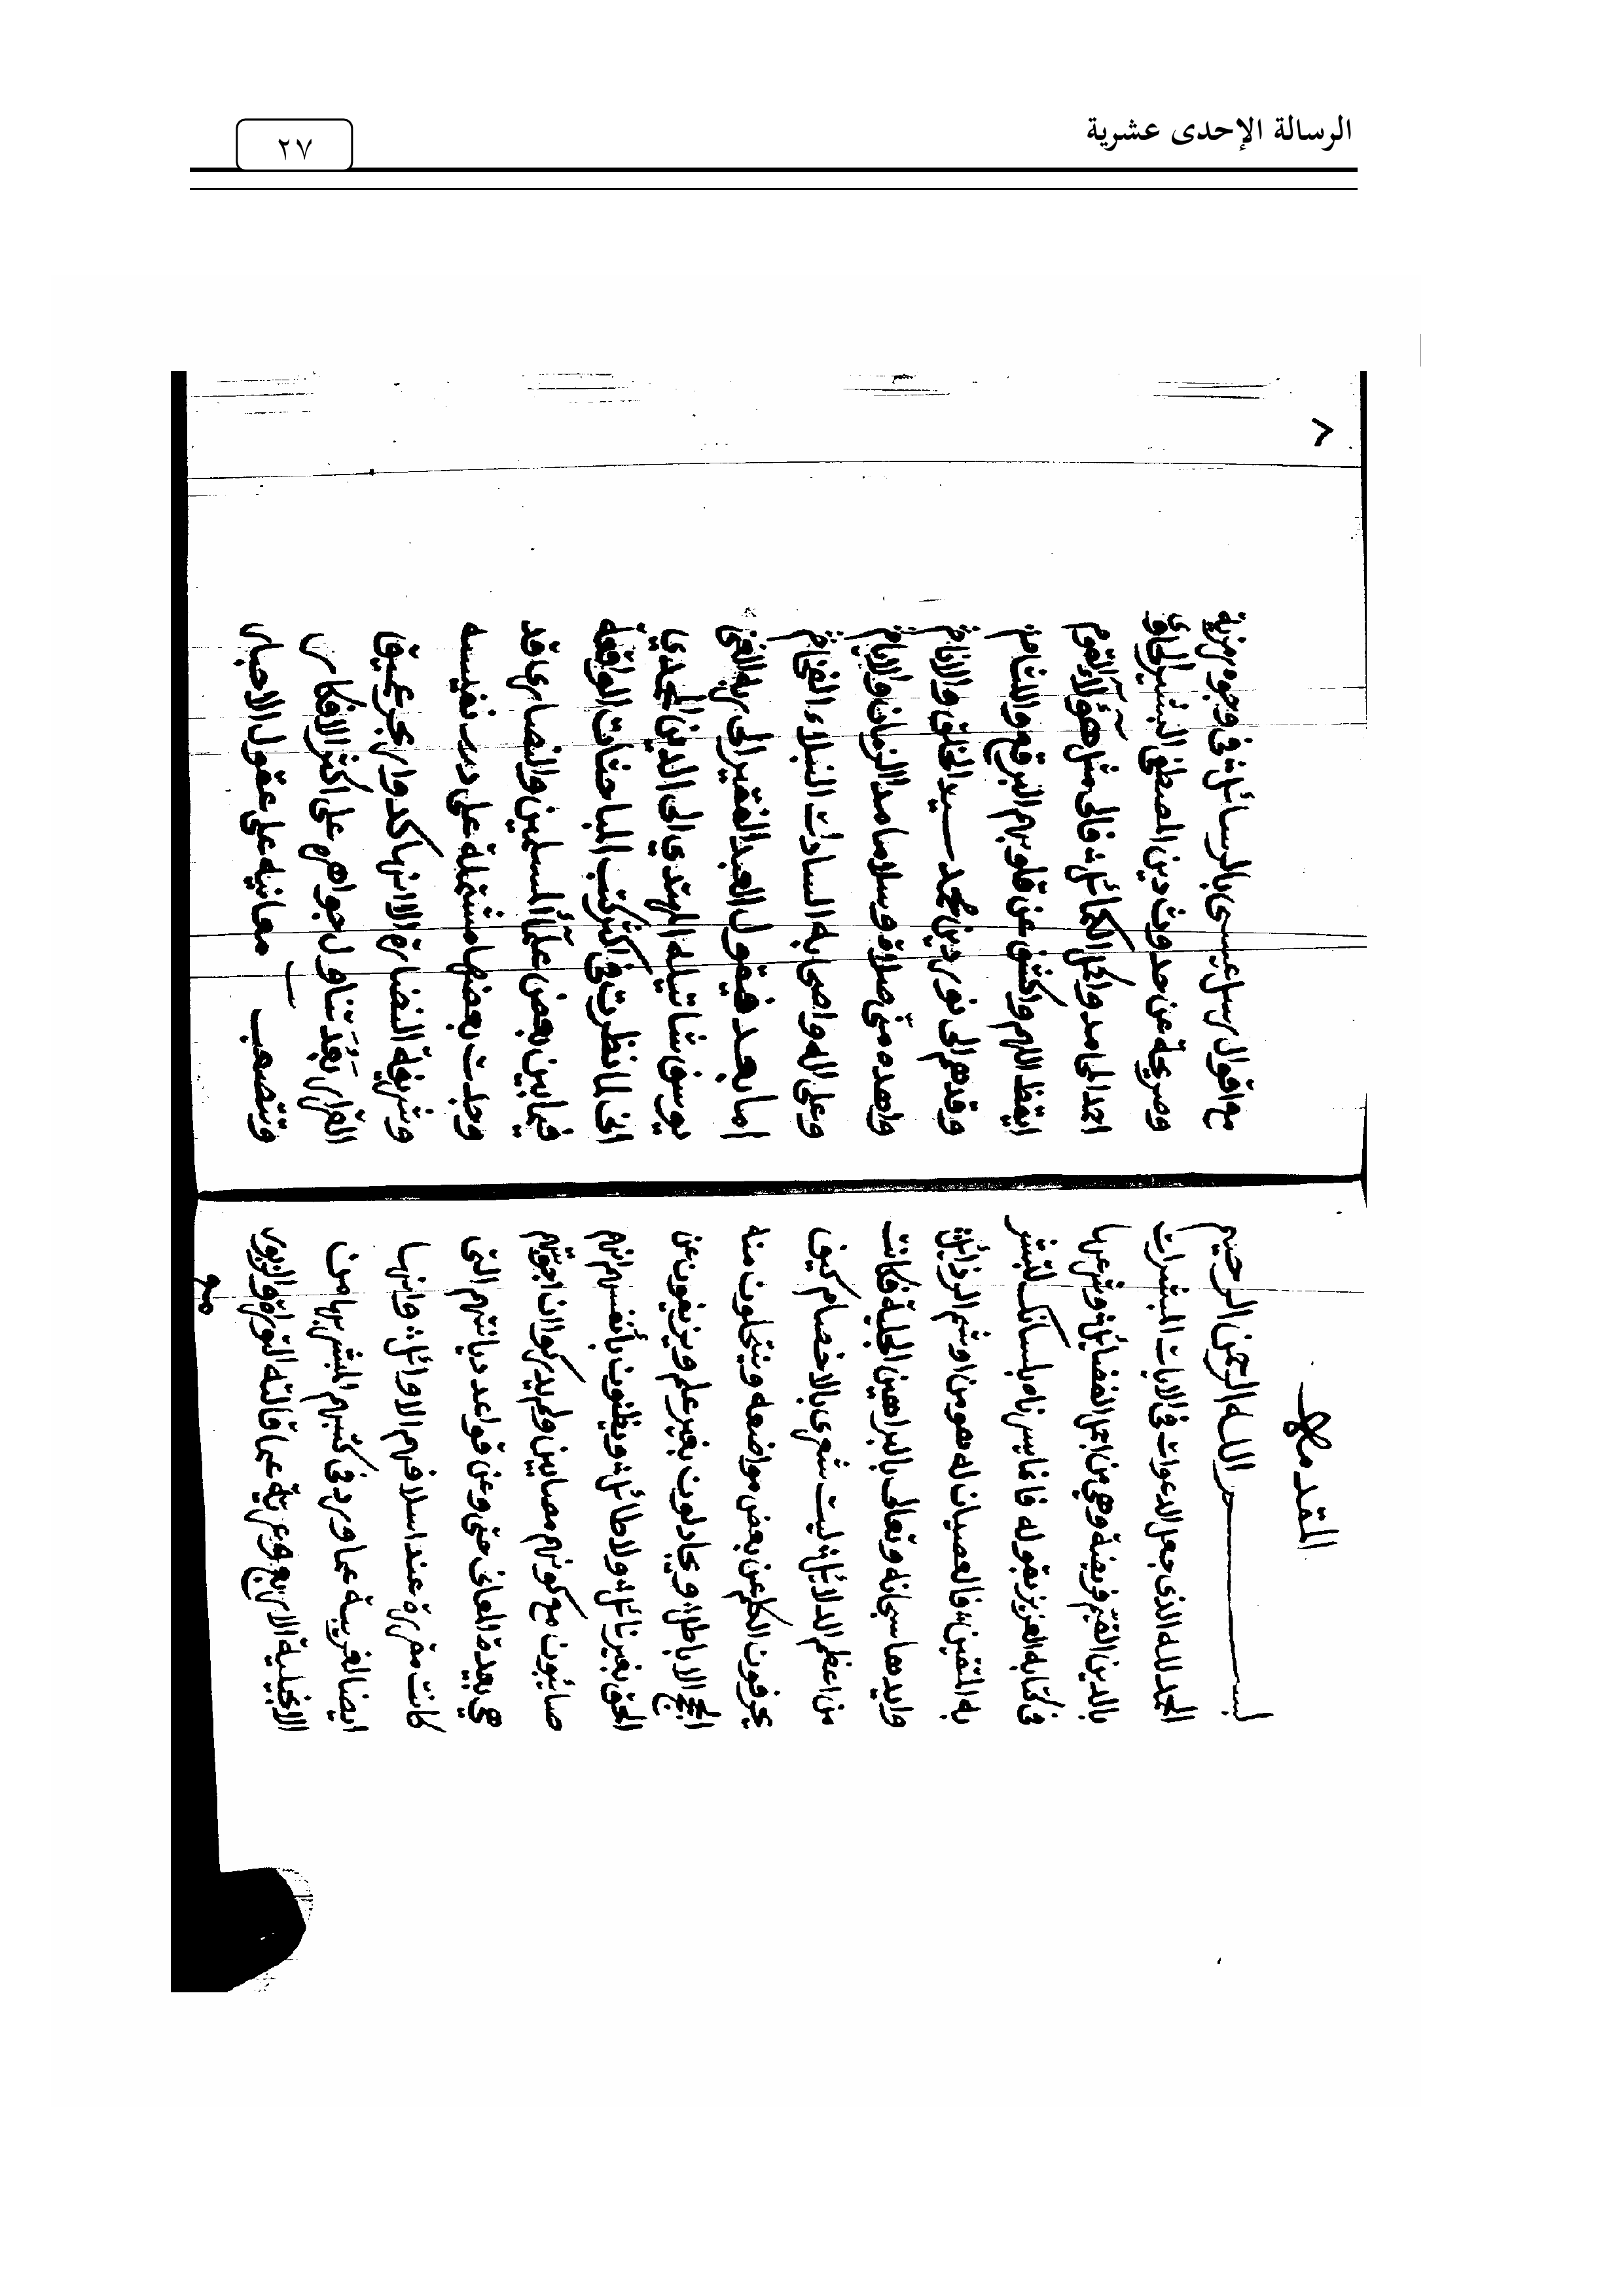 الرسالة الإحدى عشرية
٢٧
المقدمه
بسم الله الرحمن الرحيم
الحمد لله الذى جعل الدعوات فى الايات المبشرات
بالدين القيم فريضة وهي من اجل الفضائل وشرعها
فى كتابه العزيز بقوله فانما يسرناه بلسانك لتبشر
به المتقين فالعصيان له هو من اوشم الرذائل
وايدها سبحانه وتعالى بالبراهين الجلية فكانت
من اعظم الدلائل ليت شعرى بالاخصام كيف
يحرفون الكلم عن بعض مواضعه وينتحلون منه
الحجج الاباطل ويجادلون بغير علم ويزيغون عن
الحق بغير نائل ولا طائل ويظنون بأنفسهم انهم
صائبون مع كونهم مصابين ولم يدركوا ان اجوبتهم
هي بعيدة المعانى حتى وعن قواعد ديانتهم التى
كانت مقررة عند اسلافهم الاوائل وانها
ايضا لغريبة عما ورد فى كتبهم المبشر بها من
الانجيلية الاربع وعرية عما قالته التوراة والزبور
مع
٧
مع اقوال رسل عيسى بالرسائل فى وجوه مزية
وصريحة عن حدوث دين المصطفى البشير الحاوى
احمد المحامد واكمل الكمائل فالى مثل هؤلاء القوم
ايقظ اللهم واكشف عن قلوبهم البرقع واللثام
وقدهم الى نور دين محمد سيد الخلق والانام
واهده منى صلاة وسلاما مدا الزمان والايام
وعلى اله واصحابه السادات النبلاء الفخام
اما بعد فيقول العبد الفقير الى ربه الغني
يوسف شاتيله المهتدي الى الدين المحمدي
انى لما نظرت فى اكثر كتب المباحثات الواقعه
فيما بين بعض علماء المسلمين والنصارى قد
وجدت بعضها مشتملة على درر نفيسه
وشريفة النضارة الا انها كدرار بحر عميق
القرار بعد تناول جواهره على اكثر الافكار
وتصعب معانيه على عقول الاحبار